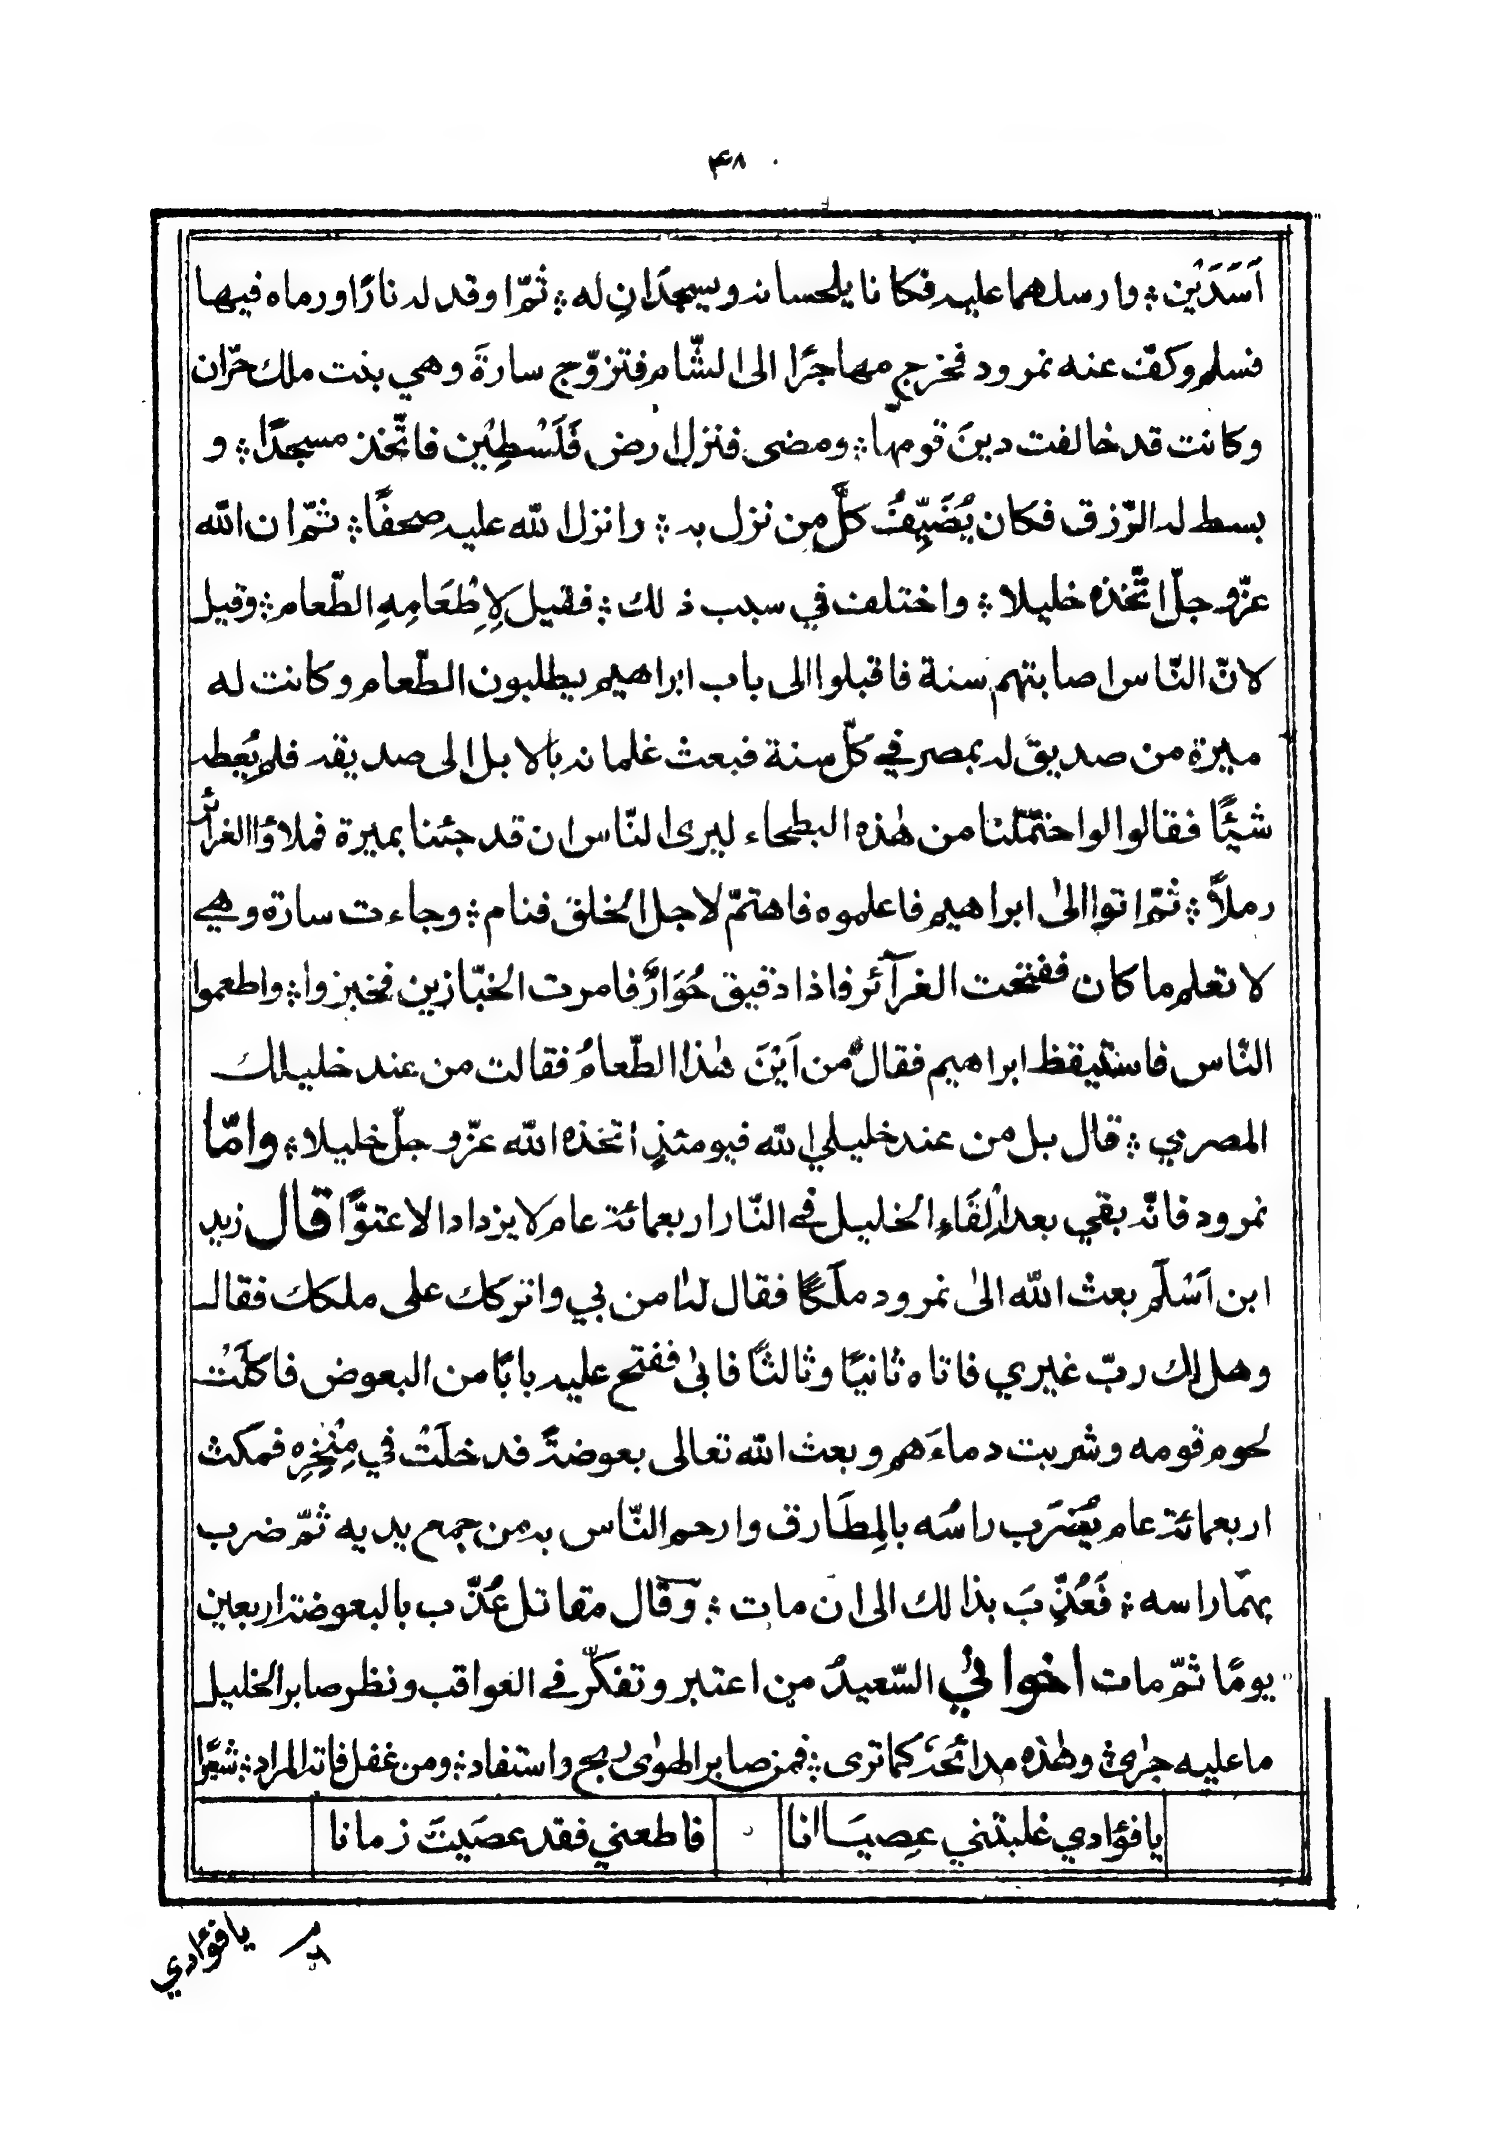 ۴۸
اَسَدَيْن ؞ وارسلهما عليه فكانا يلحسانه ويسجدَانِ له ؞ ثُمّ اوقد له نارًا ورماه فيها
فسلم وكفّ عنه نمرود فخرج مهاجرًا الى الشّام فتزوّج سارةَ وهي بنت ملك حرّان
وكانت قد خالفت دينَ قومها ؞ ومضى فنزل ارض فَلَسْطِيْن فاتّخذ مسجدًا ؞ و
بسط له الرّزق فكان يُضَيِّفُ كلَّ من نزل به ؞ وانزل الله عليه صحفًا ؞ ثمّ ان الله
عزّوجلّ اتّخذه خليلا ؞ واختلف في سبب ذلك ؞ فقيل لِاِطْعَامِهِ الطّعام ؞ وقيل
لانّ النّاس اصابتهم سنة فاقبلوا الى باب ابراهيم يطلبون الطّعام وكانت له
ميرة من صديق له بمصر في كلّ سنة فبعث غلمانه بالابل الى صديقه فلم يُعطه
شيئًا فقالوا لو احتمَلنا من هٰذه البطحاء ليرى النّاس ان قد جئنا بميرة فملاؤا الغرائر
رملاً ؞ ثُمّ اتوا الىٰ ابراهيم فاعلموه فاهتمّ لاجل الخلق فنام ؞ وجاءت سارة وهي
لا تعلم ما كان ففتحت الغرآئر فاذا دقيق حُوَارٌّ فامرت الخبّازين فخبزوا ؞ واطعموا
النّاس فاستيقظ ابراهيم فقالَ من اَيْنَ هٰذا الطّعامُ فقالت من عند خليلك
المصري ؞ قال بل من عند خليلي الله فيومئذٍ اتخذه الله عزّوجلّ خليلا ؞ وامّا
نمرود فانّه بقي بعد اِلْقَاءِ الخليل في النّار اربعمائة عام لا يزداد الا عتوًّا قال زيد
ابن اَسْلَم بعث الله الىٰ نمرود ملَكًا فقال لنا من بي واتركك على ملكك فقال
وهل لك ربّ غيري فاتاه ثانيًا وثالثًا فابىٰ ففتح عليه بابًا من البعوض فاكلَتْ
لحوم قومه وشربت دماءَهم وبعث الله تعالى بعوضةً فدخلَتْ في مِنْخِرِه فمكث
اربعمائة عام يُضرَب راسُه بالمِطَارق وارحم النّاس به من جمع يديه ثمّ ضرب
بهمّا راسه ؞ فَعُذِّبَ بذالك الى ان مات ؞ وقال مقاتل عُذّب بالبعوضة اربعين
يومًا ثمّ مات اخوائي السّعيدُ من اعتبر وتفكّر في العواقب ونظر صابر الخليل
ما عليه جرٰى ؞ وهٰذه مدائحهُ كما ترى ؞ فمن صابر الهوٰى ربح واستفاد ؞ ومن غفل فاته المراد ؞ شعرًا
يا فؤادي غلبتني عِصيَانا فاطعني فقد عصَيتَ زمانا
يا فؤادي